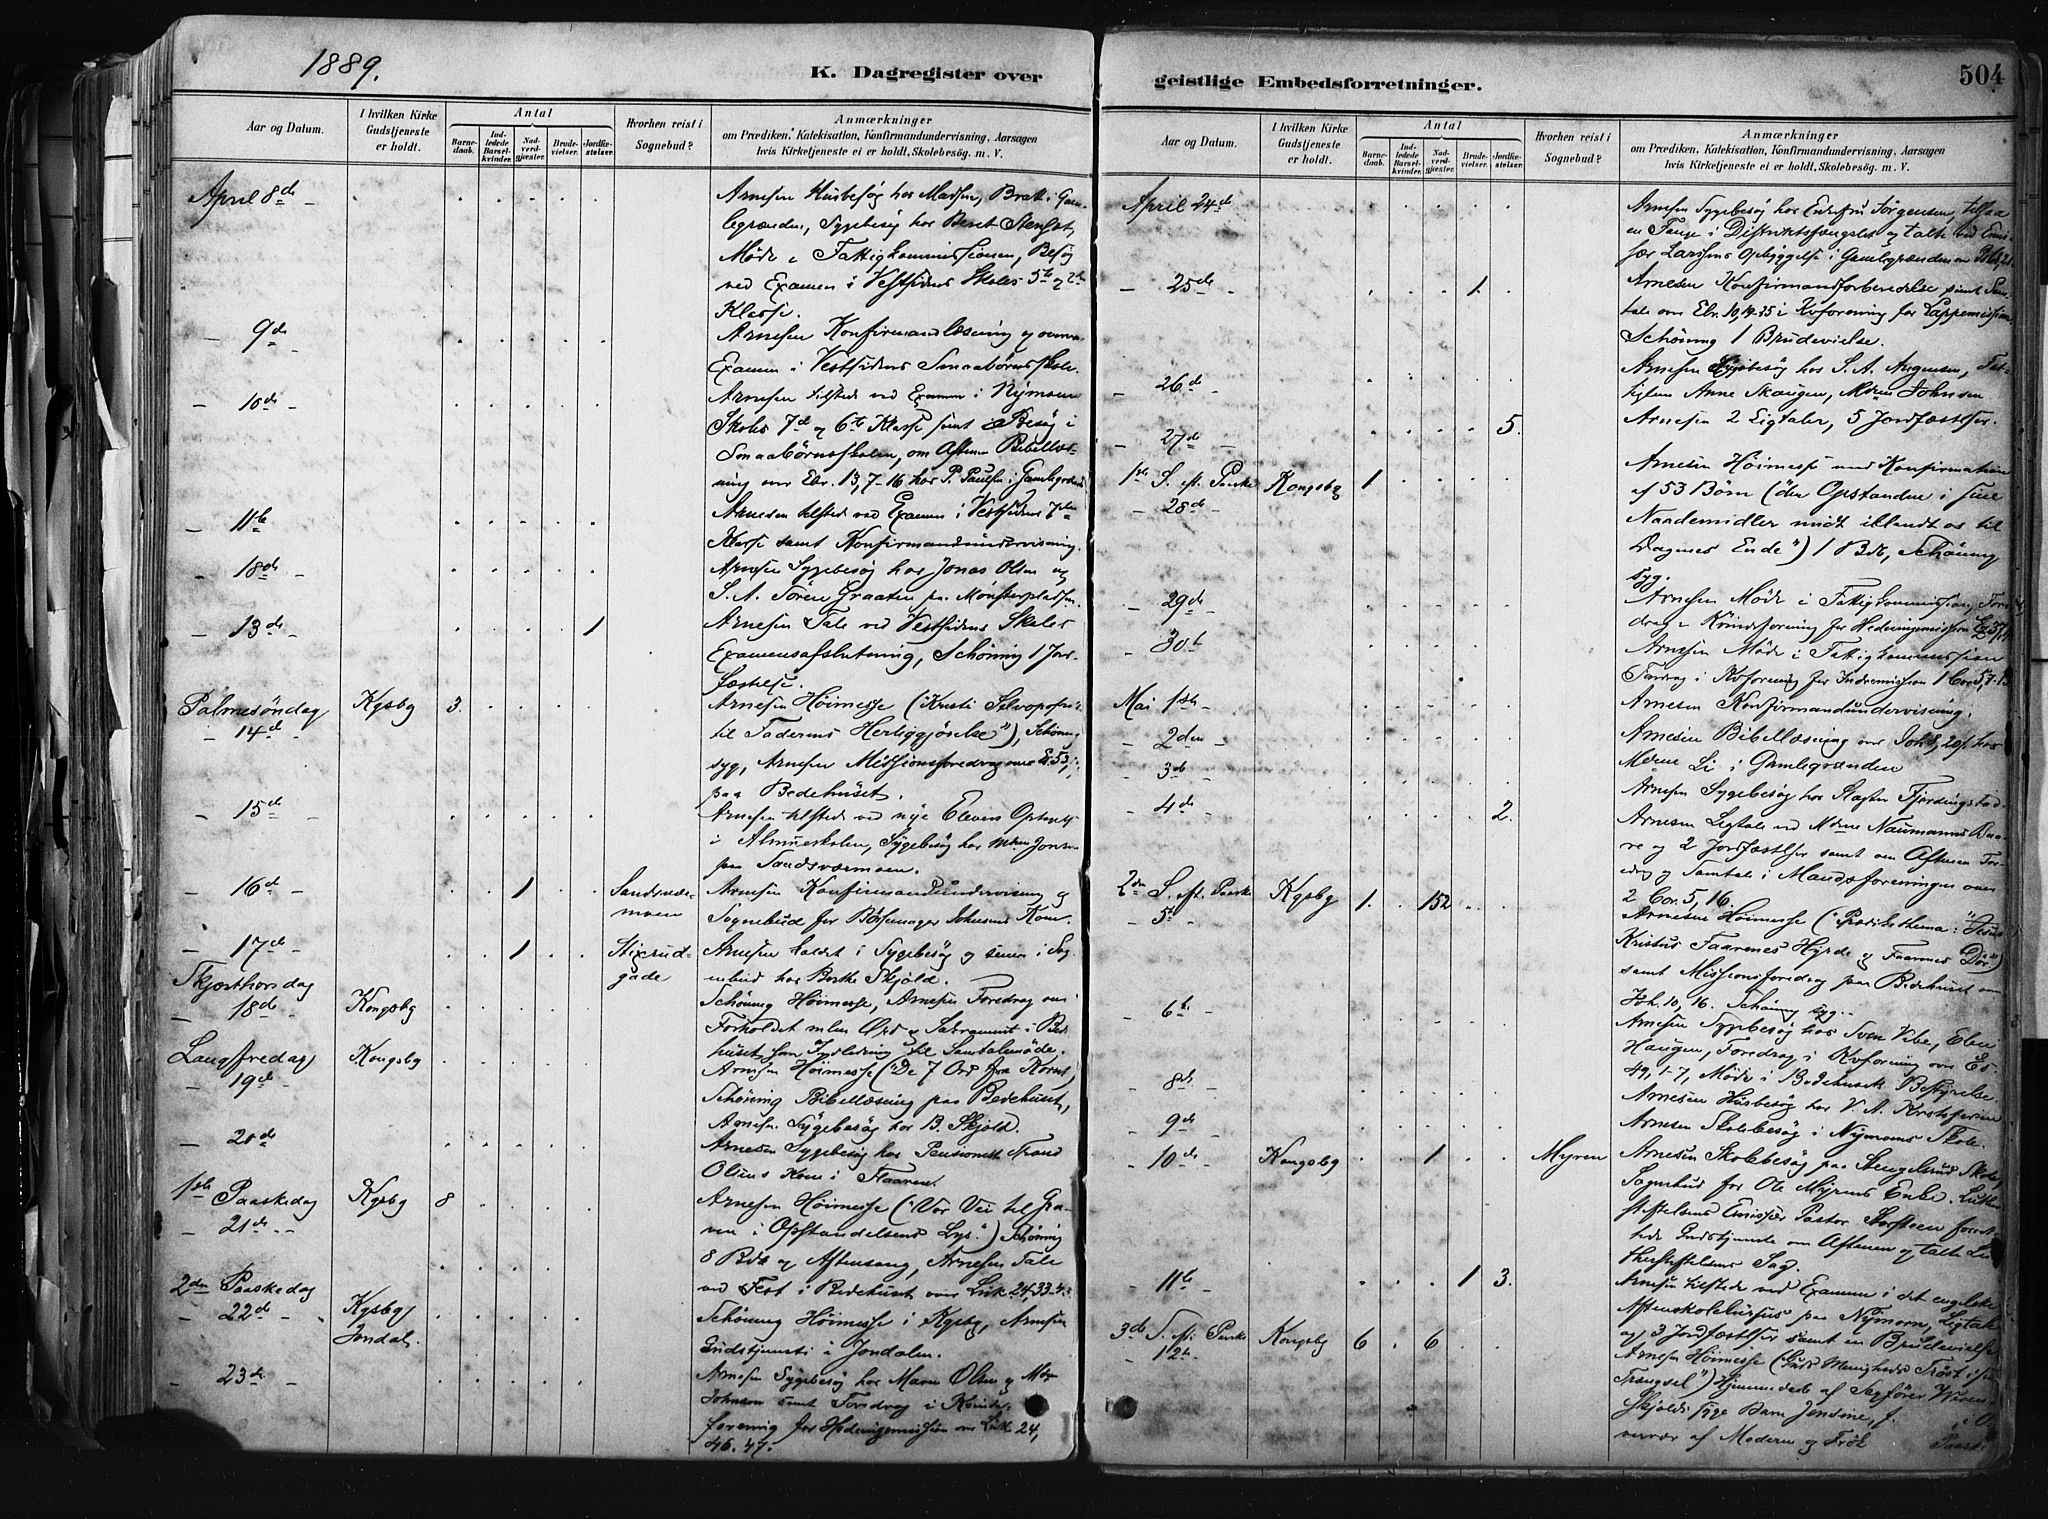 1889.
K. Dagregister over
geistlige Embedsforretninger.
504
Aar og Datum.
I hvilken Kirke Gudstjeneste er holdt.
Antal
Barnedaab.
Indledede Barselkvinder.
Nadverdgjæster.
Brudevielser.
Jordfæstelser.
Hvorhen reist i Sognebud?
Anmærkninger
om Prædiken, Katekisation, Konfirmandundervisning, Aarsagen
hvis Kirketjeneste ei er holdt, Skolebesøg. m. V.
April 8de
Arnesen Husbesøg hos Madsen, Brat i Gam-
legrænden, Sygebesøg hos Beret
Møde i Fattigkommissionen, Besøg
ved Examen i Vestsidens Skoles 5te og 2den
Klasse.
9de
Arnesen Konfirmandlæsning og
Examen i Vestsidens Smaabørnsskole.
10de
Arnesen tilstede ved Examen i Nymoens
Skoles 7de og 6te Klasse samt Besøg i
Smaabørnsskolen, om Aftenen Bibellæs-
ning over Ebr. 13, 7-16 hos P. Paulsen i Gamlegrænden
11te
Arnesen tilstede ved Examen i Vestsidens 7de
Klasse samt Konfirmandundervisning.
18de
Arnesen Sygebesøg hos Jonas Olsen og
S. A. Sören Graaten paa Mønsterpladsen.
13de
1
Arnesen Tale ved Vestsidens Skoles
Examensafslutning, Schöning 1 Jord-
fæstelse.
Palmesöndag
14de
Kgsbg
3.
Arnesen Höimesse ("Kristi Selvopofrelse
til Faderens Herliggjörelse"), Schöning
syg, Arnesen Missionsforedrag over Es. 53,
paa Bedehuset.
15de
Arnesen tilstede ved nye Elevers Optagelse
i Almueskolen, Sygebesøg hos Jons
paa Sandsværmoen.
16de
1
Sandsvær-
moen
Arnesen Konfirmandundervisning og
Sognebud for Bøssemager Johnsens Kone.
17de
1
Stixrud-
gade
Arnesen kaldet i Sygebesøg og senere i Sog-
nebud hos Berthe Skjold.
Skjærthorsdag
18de
Kongsbg
Schöning Höimesse, Arnesen Foredrag om
Forholdet mlm Ord og Sakrament i Bede-
huset som Indledning til Samtalemöde.
Langfredag
19de
Kongsbg
Arnesen Höimesse ("De 7 Ord fra Korset"),
Schöning Bibellæsning paa Bedehuset,
Arnesen Sygebesøg hos B. Skjold.
20de
Arnesen Sygebesøg hos Pensionist
Olsens Kone i
1ste Paaskedag
21de
Kgsbg
8
Arnesen Höimesse ("Vor Vei til Gra-
ven i Opstandelsens Lys.") Schöning
8 Bdb og Aftensang, Arnesen Tale
ved Fest i Bedehuset over Luk. 24, 33-4
2den Paaskedag
22de
Kgsbg
Jondal.
Schöning Höimesse i Kgsbg, Arnesen
Gudstjeneste i Jondalen.
23de
Arnesen Sygebesøg hos Maren Olsen og
Johnsen samt Foredrag i Kvinde-
forening for Hedningemission over Luk. 24,
46. 47.
Aar og Datum.
I hvilken Kirke Gudstjeneste er holdt.
Antal
Barnedaab.
Indledede Barselkvinder.
Nadverdgjæster.
Brudevielser.
Jordfæstelser.
Hvorhen reist i Sognebud?
Anmærkninger
om Prædiken, Katekisation, Konfirmandundervisning, Aarsagen
hvis Kirketjeneste ei er holdt, Skolebesøg. m. V.
April 24de
Arnesen Sygebesøg hos Enkefru Jørgensen, tilsaa
en Fange i Distriktsfængslet og talte ved Emis-
sær Larssens Opbyggelse i Gamlegrænden
25de
1.
Arnesen Konfirmandforberedelse samt Sam-
tale over Ebr. 10, 19-35 i Kvforening for Lappemission
Schöning 1 Brudevielse.
26de
Arnesen Sygebesøg hos S. A. Fat-
tiglem Anne Skaugen, Johnsen
27de
5.
Arnesen 2 Ligtaler, 5 Jordfæstelser.
1ste S. eft. Paaske
28de
Kongsbg
1
Arnesen Höimesse med Konfirmation
af 53 Börn (den Opstandne i sine
Naademidler midt iblandt os til
Dagenes Ende") 1 Bdb, Schöning
syg.
29de
Arnesen Möde i Fattigkommission, Fore-
drag i Kvindeforening for Hedningemission
30te
Arnesen Möde i Fattigkommissionen
Foredrag i Kvforening for Indremission 1 Cor. 5, 7-13
Mai 1ste
Arnesen Konfirmandundervisning.
2den
Arnesen Bibellæsning over Joh. 8, 20f. hos
Li i Gamlegrænden
3de
Arnesen Sygebesøg hos
4de
2.
Arnesen Ligtale ved Naumanns Baa-
re og 2 Jordfæstelser samt om Aftenen Fore-
drag og Samtale i Mandsforeningen over
2 Cor. 5, 16.
2den S. eft. Paaske
5te
Kgsbg
1.
152
Arnesen Höimesse ("Prædikethema: Jesus
Kristus Faarenes Hyrde og Faarenes Dör")
samt Missionsforedrag paa Bedehuset over
Joh. 10, 16. Schöning syg.
6te
Arnesen Sygebesøg hos Sven Vibe,
Haugen, Foredrag i Kvforening over Es.
49, 1-7, Möde i Bedehusets Bestyrelse.
8de
Arnesen Husbesøg hos V. A. Kristofersen
9de
Arnesen Skolebesøg i Nymoens Skole.
10de
Kongsbg
1
Myren
Arnesen Skolebesøg paa Stengelsrud Skole,
Sognebud for Ole Myrens Enke. Luther-
stiftelsens Emissær Pastor Storsteen forret-
tede Gudstjeneste om Aftenen og talte Lu-
therstiftelsens Sag.
11te
1
3.
Arnesen tilstede ved Examen i det engelske
Aftenskolekursus paa Nymoen, Ligtale
og 3 Jordfæstelser samt en Brudevielse
3de S. eft. Paaske
12te
Kongsbg
6
6
Arnesen Höimesse (Guds Menigheds Tröst i sin
Trængsel") Hjemmedøb af Sagfører
Skjolds syge Barn Jensine, f.
værær af Moderen og Frök